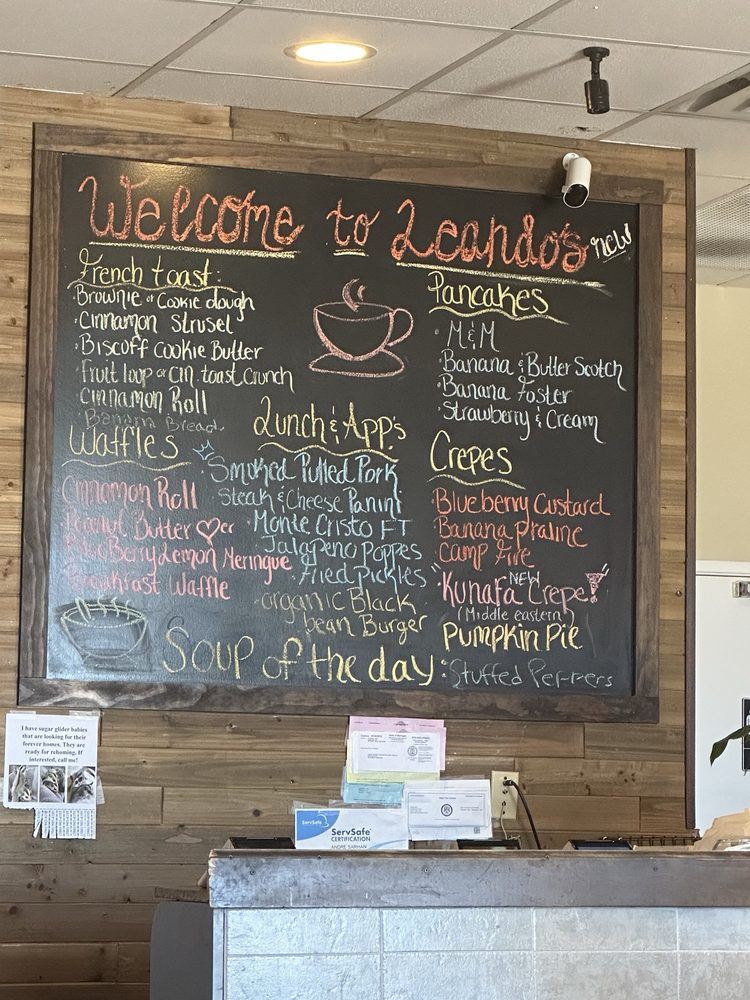 Welcome to Leando's new
French toast:
Brownie or Cookie dough
Cinnamon Strusel
Biscoff Cookie Butter
Fruit loop or CIN. toast Crunch
Cinnamon Roll
Banana Bread
Waffles
Cinnamon Roll
Peanut Butter ♡er
BlueBerry Lemon Meringue
Breakfast Waffle
Lunch & App's
Smoked Pulled Pork
Steak & Cheese Panini
Monte Cristo FT
Jalapeno Poppes
Fried Pickles
organic Black
bean Burger
Pancakes
M&M
Banana & Butter Scotch
Banana Foster
Strawberry & Cream
Crepes
Blueberry Custard
Banana praline
Camp Fire
NEW
Kunafa Crepe!
(Middle eastern)
Pumpkin Pie
Soup of the day: Stuffed Peppers
I have sugar glider babies
that are looking for their
forever homes. They are
ready for rehoming. If
interested, call me!
ServSafe
ServSafe
CERTIFICATION
ANDRE SARHAN